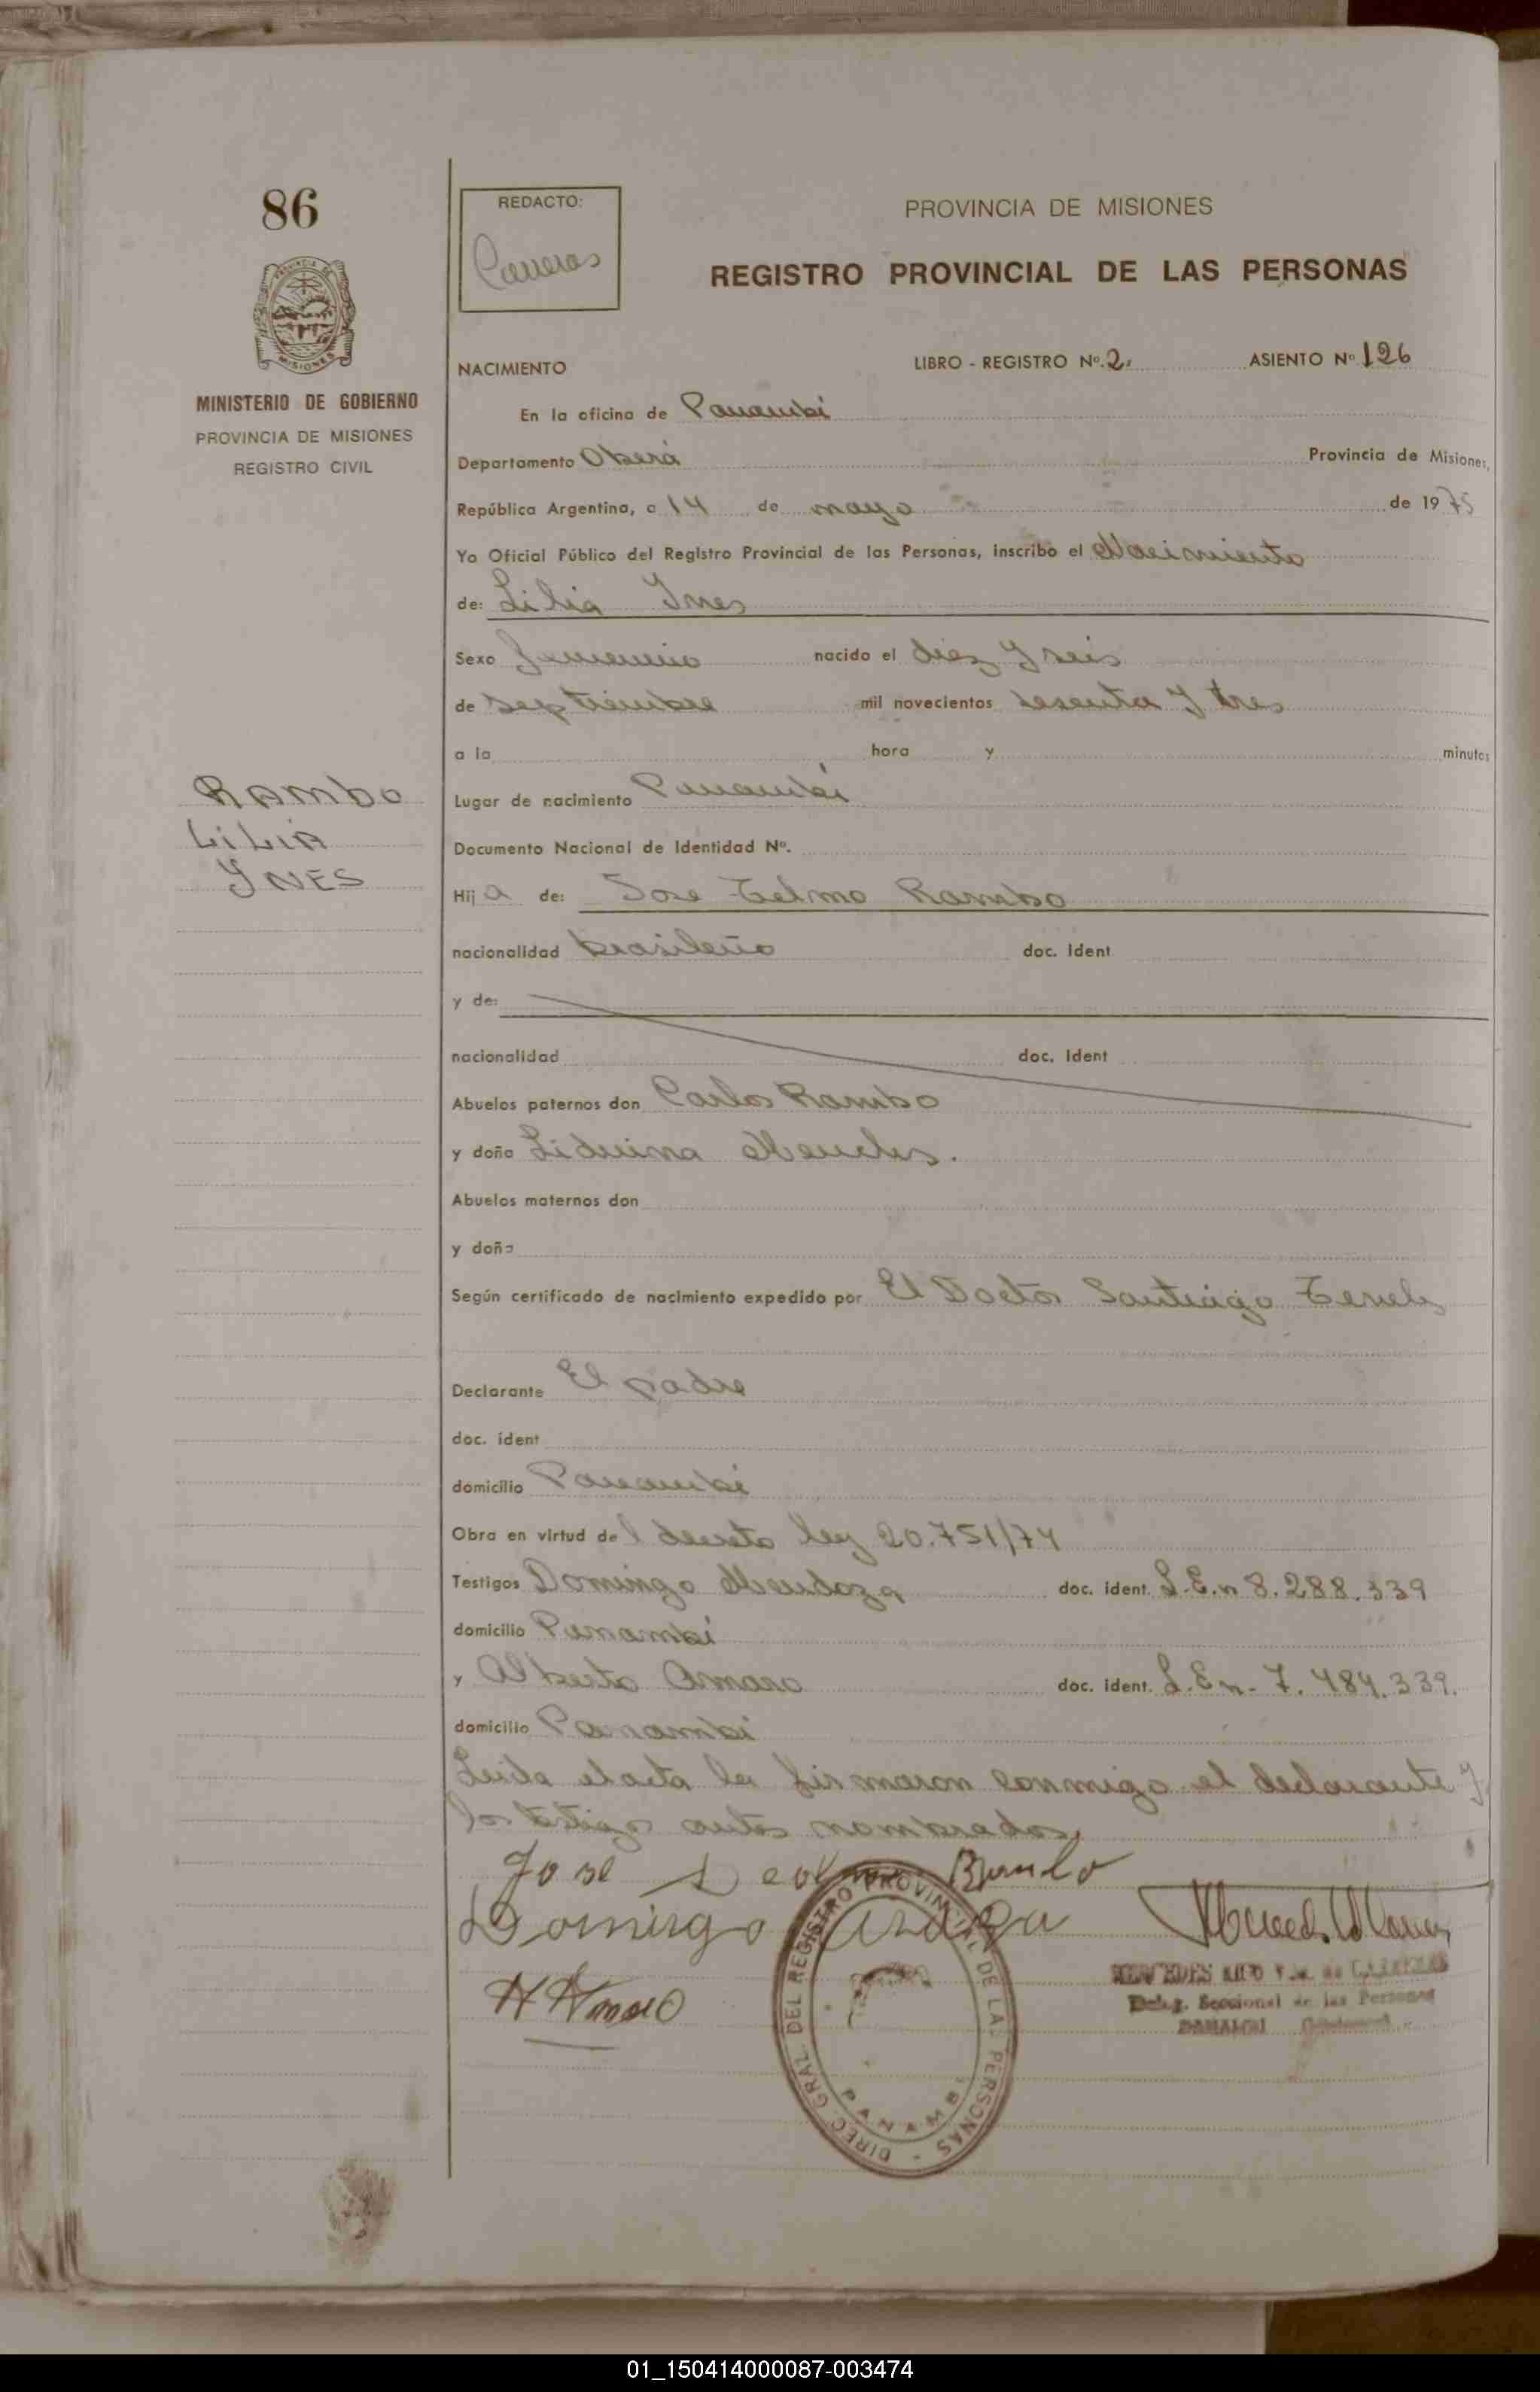 86
REDACTO:
Carreras
PROVINCIA DE MISIONES
REGISTRO PROVINCIAL DE LAS PERSONAS
MINISTERIO DE GOBIERNO
PROVINCIA DE MISIONES
REGISTRO CIVIL
NACIMIENTO LIBRO - REGISTRO Nº. 2. ASIENTO Nº 126
En la oficina de Panambí
Departamento Oberá Provincia de Misiones,
República Argentina, a 14 de mayo de 1975
Yo Oficial Público del Registro Provincial de las Personas, inscribo el Nacimiento
de: Lilia Ynes
Sexo femenino nacido el diez y seis
de septiembre mil novecientos sesenta y tres
a la hora y minutos
Lugar de nacimiento Panambí
RAMBO
LILIA
YNES
Documento Nacional de Identidad Nº.
Hij a de: Jose Telmo Rambo
nacionalidad brasileño doc. Ident
y de:
nacionalidad doc. Ident
Abuelos paternos don Carlos Rambo
y doña Liduina
Abuelos maternos don
y doña
Según certificado de nacimiento expedido por El Doctor Santiago
Declarante El padre
doc. ident
domicilio Panambí
Obra en virtud de l decreto ley 20.751/74
Testigos Domingo Mendoza doc. ident. L.E.n 8.288.339
domicilio Panambí
y Alberto Amaro doc. ident. L.E.n- 7.484.339.
domicilio Panambí
Leída el acta la firmaron conmigo el declarante y
los testigos antes nombrados,
Jose
Domingo
DIREC. GRAL. DEL REGISTRO PROVINCIAL DE LAS PERSONAS -
PANAMBI
Deleg. Seccional de las Personas
PANAMBI
01_150414000087-003474